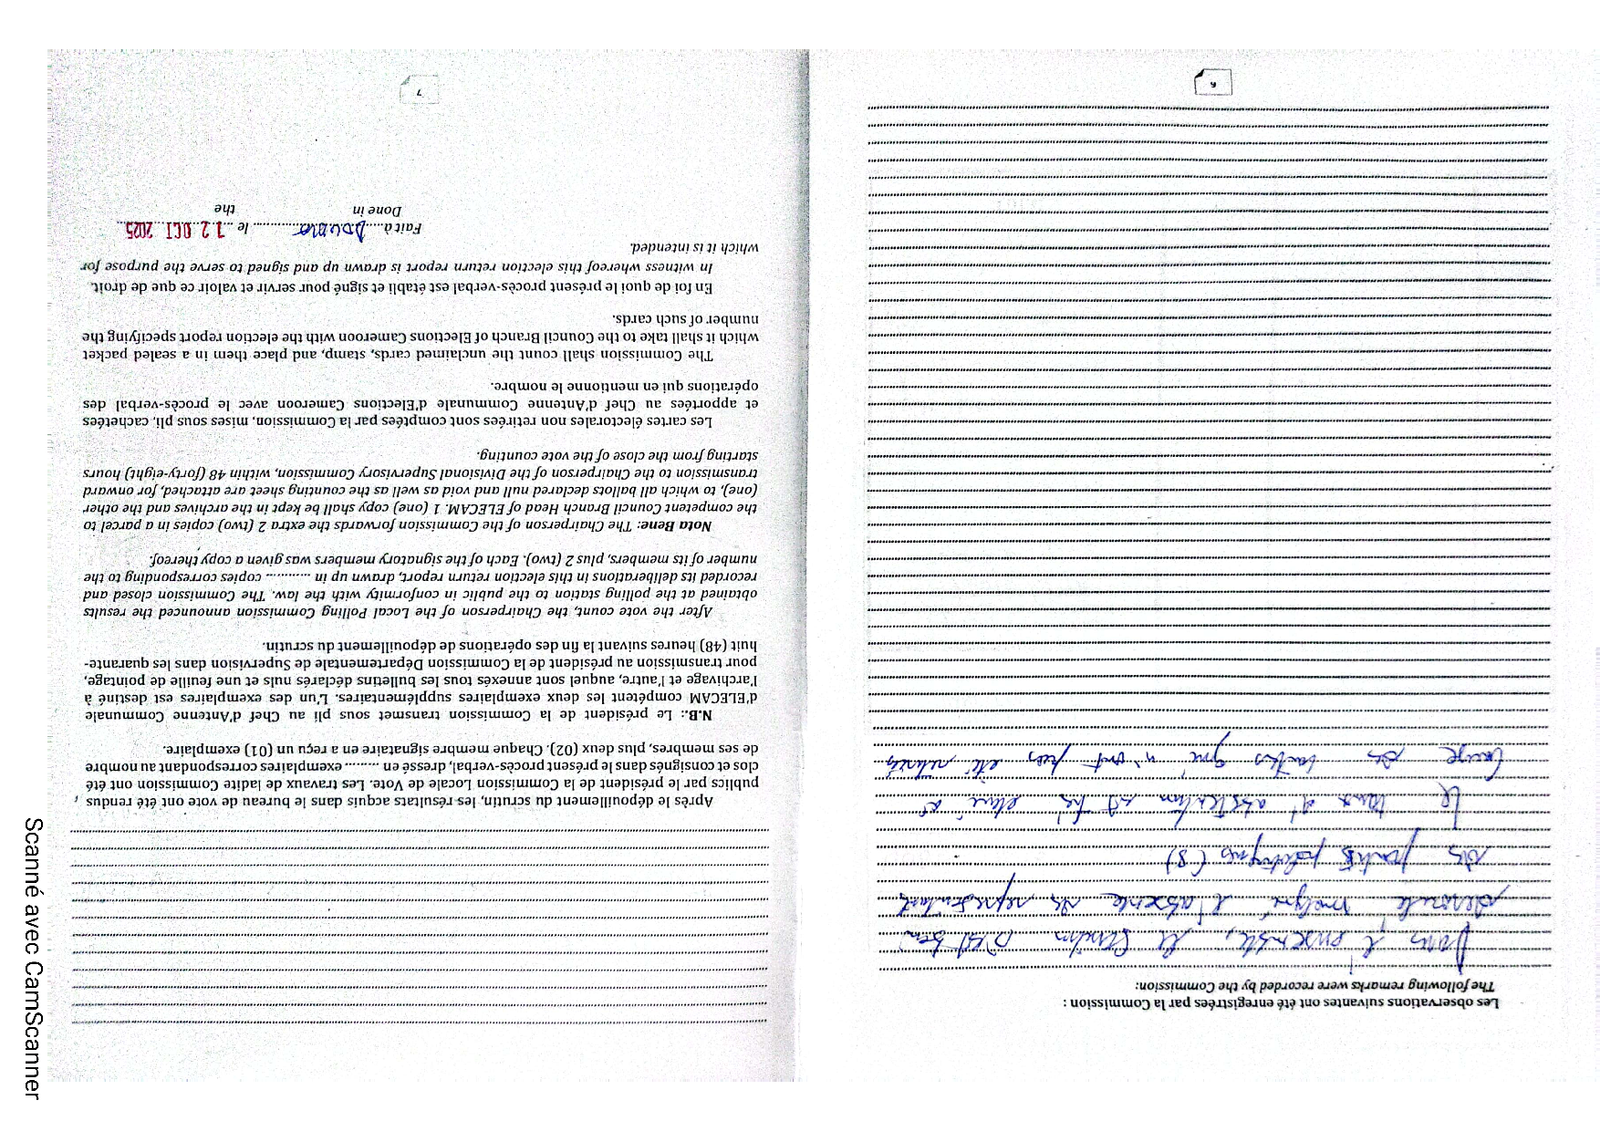 Les observations suivantes ont été enregistrées par la Commission :
The following remarks were recorded by the Commission:
Dans l'ensemble, le scrutin s'est bien
deroulé malgré l'absence des représentant
des partis politiques (8)
Le taux d'abstention est très élevé à
cause des cartes qui n'ont pas été retirées
6
Après le dépouillement du scrutin, les résultats acquis dans le bureau de vote ont été rendus
publics par le président de la Commission Locale de Vote. Les travaux de ladite Commission ont été
clos et consignés dans le présent procès-verbal, dressé en ......... exemplaires correspondant au nombre
de ses membres, plus deux (02). Chaque membre signataire en a reçu un (01) exemplaire.
N.B.: Le président de la Commission transmet sous pli au Chef d'Antenne Communale
d'ELECAM compétent les deux exemplaires supplémentaires. L'un des exemplaires est destiné à
l'archivage et l'autre, auquel sont annexés tous les bulletins déclarés nuls et une feuille de pointage,
pour transmission au président de la Commission Départementale de Supervision dans les quarante-
huit (48) heures suivant la fin des opérations de dépouillement du scrutin.
After the vote count, the Chairperson of the Local Polling Commission announced the results
obtained at the polling station to the public in conformity with the law. The Commission closed and
recorded its deliberations in this election return report, drawn up in .......... copies corresponding to the
number of its members, plus 2 (two). Each of the signatory members was given a copy thereof.
Nota Bene: The Chairperson of the Commission forwards the extra 2 (two) copies in a parcel to
the competent Council Branch Head of ELECAM. 1 (one) copy shall be kept in the archives and the other
(one), to which all ballots declared null and void as well as the counting sheet are attached, for onward
transmission to the Chairperson of the Divisional Supervisory Commission, within 48 (forty-eight) hours
starting from the close of the vote counting.
Les cartes électorales non retirées sont comptées par la Commission, mises sous pli, cachetées
et apportées au Chef d'Antenne Communale d'Elections Cameroon avec le procès-verbal des
opérations qui en mentionne le nombre.
The Commission shall count the unclaimed cards, stamp, and place them in a sealed packet
which it shall take to the Council Branch of Elections Cameroon with the election report specifying the
number of such cards.
En foi de quoi le présent procès-verbal est établi et signé pour servir et valoir ce que de droit.
In witness whereof this election return report is drawn up and signed to serve the purpose for
which it is intended.
Fait à ..... Douala .......... le ... 12 OCT 2025
Done in the
7
Scanné avec CamScanner